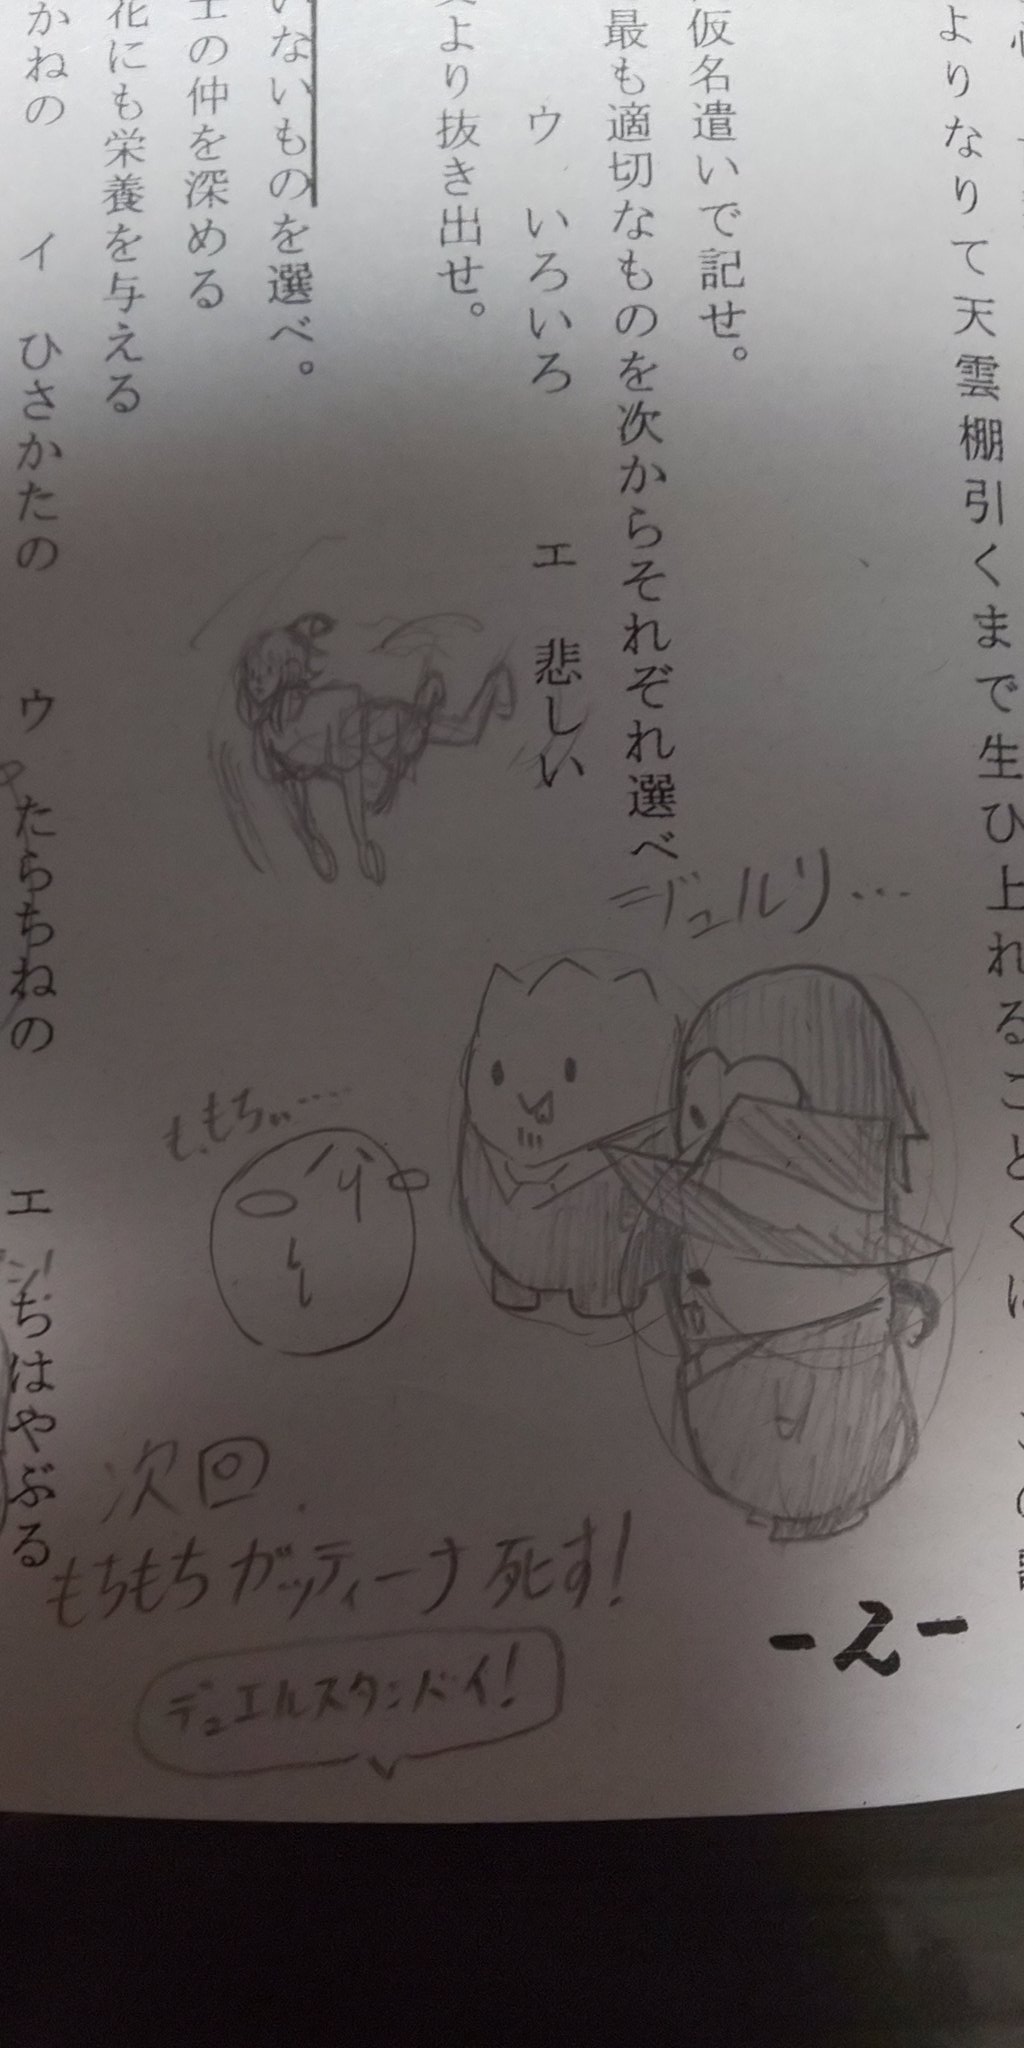 よりなりて天雲棚引くまで生ひ上れることくに
仮名遣いで記せ。
最も適切なものを次からそれぞれ選べ
ウ いろいろ エ 悲しい
より抜き出せ。
いないものを選べ。
の仲を深める
花にも栄養を与える
かねの イ ひさかたの ウ たらちねの エ ちはやぶる
デュルリ…
も、もちぃ…
次回
もちもちガッティーナ死す!
デュエルスタンバイ!
-2-